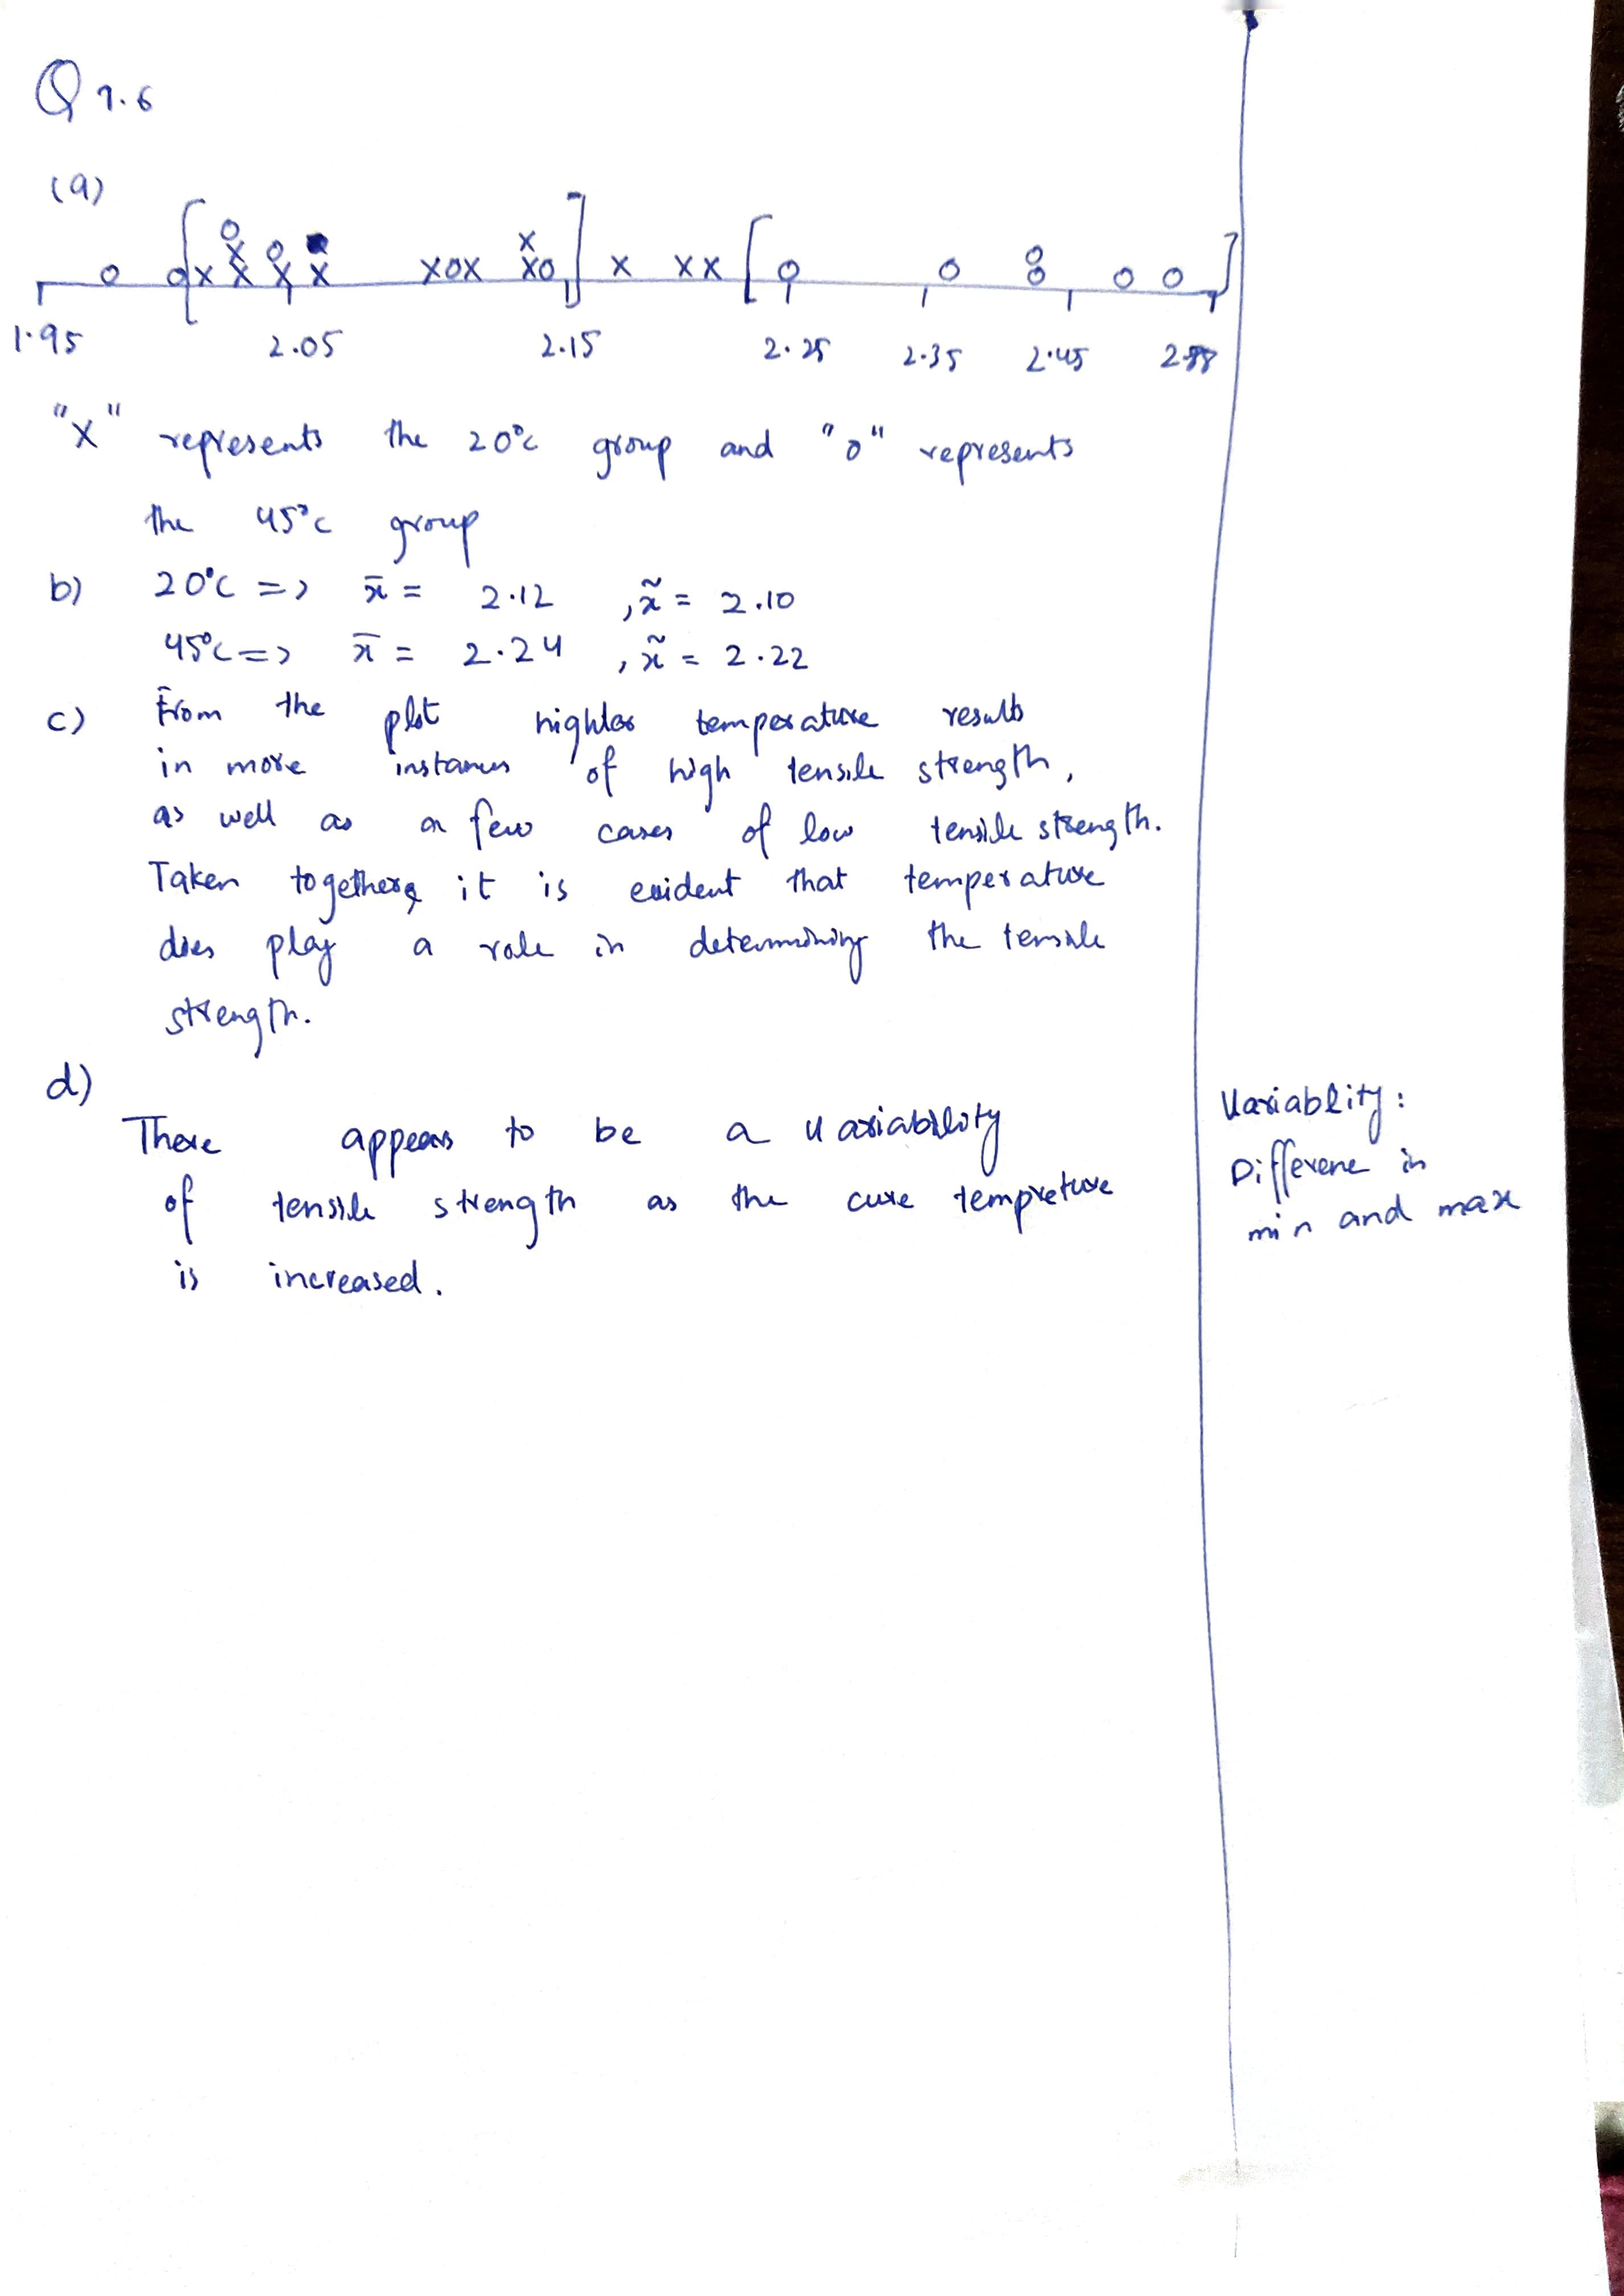 Q 1.6
(a)
1.95 2.05 2.15 2.25 2.35 2.45
"X" represents the 20°C group and "o" represents
the 45°C group
b) 20°C => x̄ = 2.12 , x̃ = 2.10
45°C => x̄ = 2.24 , x̃ = 2.22
c) From the plot higher temperature results
in more instances of high tensile strength,
as well as a few cases of low tensile strength.
Taken together, it is evident that temperature
does play a role in determining the tensile
strength.
d)
There appears to be a variability
of tensile strength as the cure tempreture
is increased.
Variablity:
Differene in
min and max